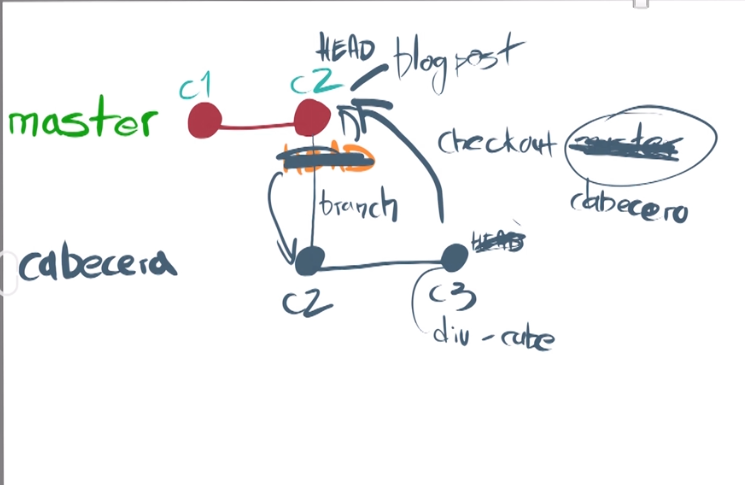 HEAD
blogpost
c1
c2
master
checkout
cabecero
branch
cabecera
c2
c3
div-cabe